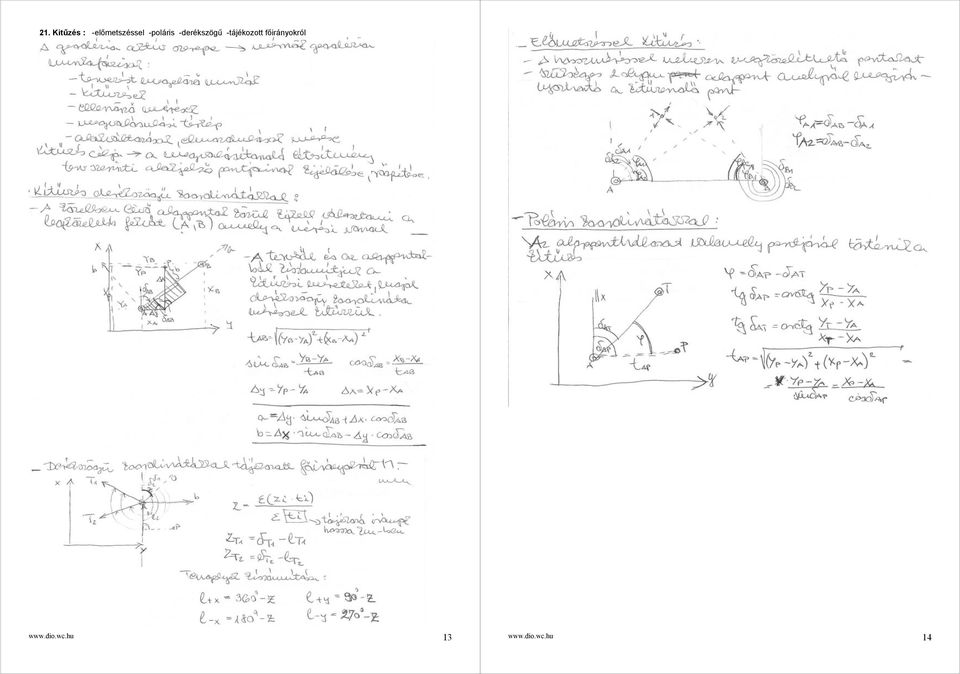 21. Kitűzés : -előmetszéssel -poláris -derékszögű -tájékozott főirányokról
A geodézia aktív szerepe → mérnöki geodézia
munkafázisai:
- tervezést megelőző munkák
- kitűzések
- ellenőrző mérések
- megvalósulási térkép
- alakváltozások, elmozdulások mérése
Kitűzés célja → a megvalósítandó létesítmény
terv szerinti alakjelző pontjainak kijelölése,
Kitűzés derékszögű koordinátákkal:
- A közelben lévő alappontok közül kijelöl választani a
legközelebbi (A, B) amely a mérési vonal
- A tervről és az alappontok-
ból kiszámítjuk a
kitűzési méreteket, majd
derékszögű koordináta
méréssel kitűzzük.
tAB=√(YB-YA)²+(XB-XA)²
sin δAB = YB-YA / tAB cosδAB = XB-XA / tAB
Δy = YP - YA Δx = XP - XA
a = Δy · sinδAB + Δx · cosδAB
b = Δx · sinδAB - Δy · cosδAB
- Derékszögű koordinátákkal tájékozott főirányokról
z = Σ(zi · ti) / Σ[ti] → tájékozó irányok
hossza km-ben
ZT1 = δT1 - lT1
ZT2 = δT2 - lT2
Tengelyek kiszámítása:
l+x = 360° - z l+y = 90° - z
l-x = 180° - z l-y = 270° - z
www.dio.wc.hu 13
- Előmetszéssel kitűzés:
- A hosszméréssel nehezen megközelíthető pontokat
- Szükséges 2 olyan alappont amelyről megirá-
nyozható a kitűzendő pont
φA1=δAB-δA1
φA2=δAB-δA2
- Poláris koordinátákkal:
Az alapponthálózat valamely pontjáról történik a
kitűzés
φ = δAP - δAT
tg δAP = arctg YP - YA / XP - XA
tg δAT = arctg YT - YA / XT - XA
tAP = √(YP - YA)² + (XP - XA)² =
= YP - YA / sinδAP = XP - XA / cosδAP
www.dio.wc.hu 14